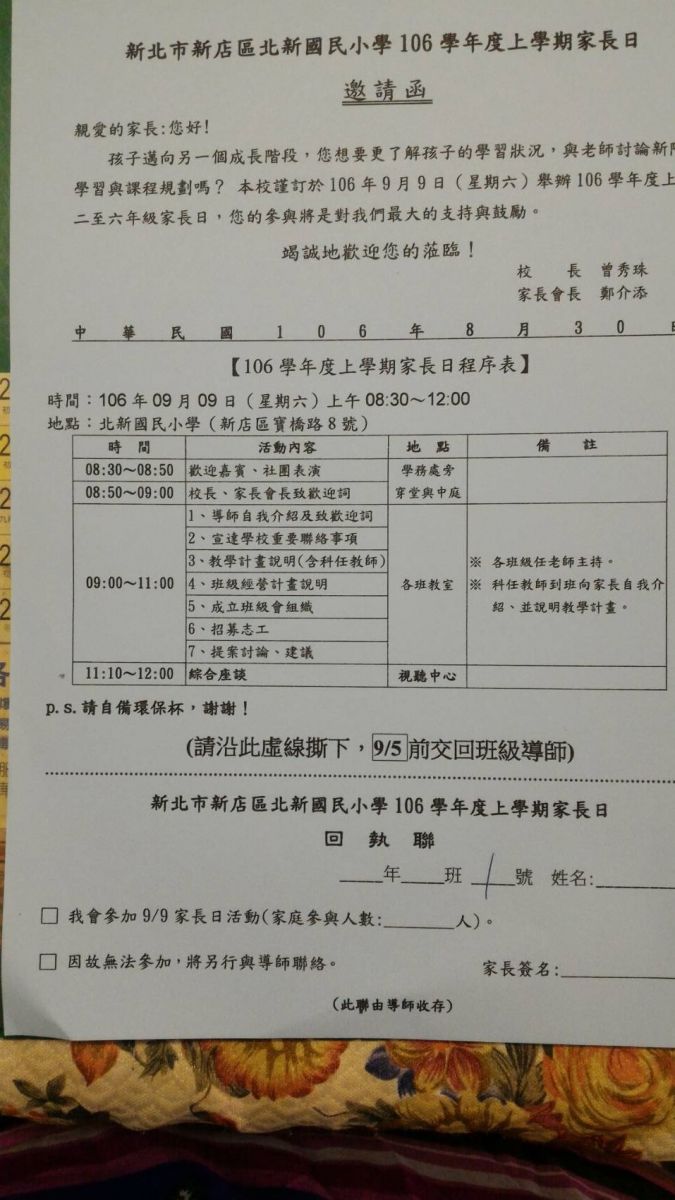 新北市新店區北新國民小學106學年度上學期家長日
邀請函
親愛的家長:您好!
孩子邁向另一個成長階段,您想要更了解孩子的學習狀況,與老師討論新
學習與課程規劃嗎? 本校謹訂於106年9月9日(星期六)舉辦106學年度上
二至六年級家長日,您的參與將是對我們最大的支持與鼓勵。
竭誠地歡迎您的蒞臨!
校 長 曾秀珠
家長會長 鄭介添
中華民國106年8月30日
【106學年度上學期家長日程序表】
時間:106年09月09日(星期六)上午08:30~12:00
地點:北新國民小學(新店區寶橋路8號)
時 間 活動內容 地 點 備 註
08:30~08:50 歡迎嘉賓、社團表演 學務處旁
08:50~09:00 校長、家長會長致歡迎詞 穿堂與中庭
1、導師自我介紹及致歡迎詞
2、宣達學校重要聯絡事項
3、教學計畫說明(含科任教師) ※ 各班級任老師主持。
09:00~11:00 4、班級經營計畫說明 各班教室 ※ 科任教師到班向家長自我介
5、成立班級會組織 紹、並說明教學計畫。
6、招募志工
7、提案討論、建議
11:10~12:00 綜合座談 視聽中心
p.s.請自備環保杯,謝謝!
(請沿此虛線撕下,9/5前交回班級導師)
新北市新店區北新國民小學106學年度上學期家長日
回 執 聯
____年____班 ____號 姓名:________
□ 我會參加9/9家長日活動(家庭參與人數:_______人)。
□ 因故無法參加,將另行與導師聯絡。 家長簽名:________
(此聯由導師收存)